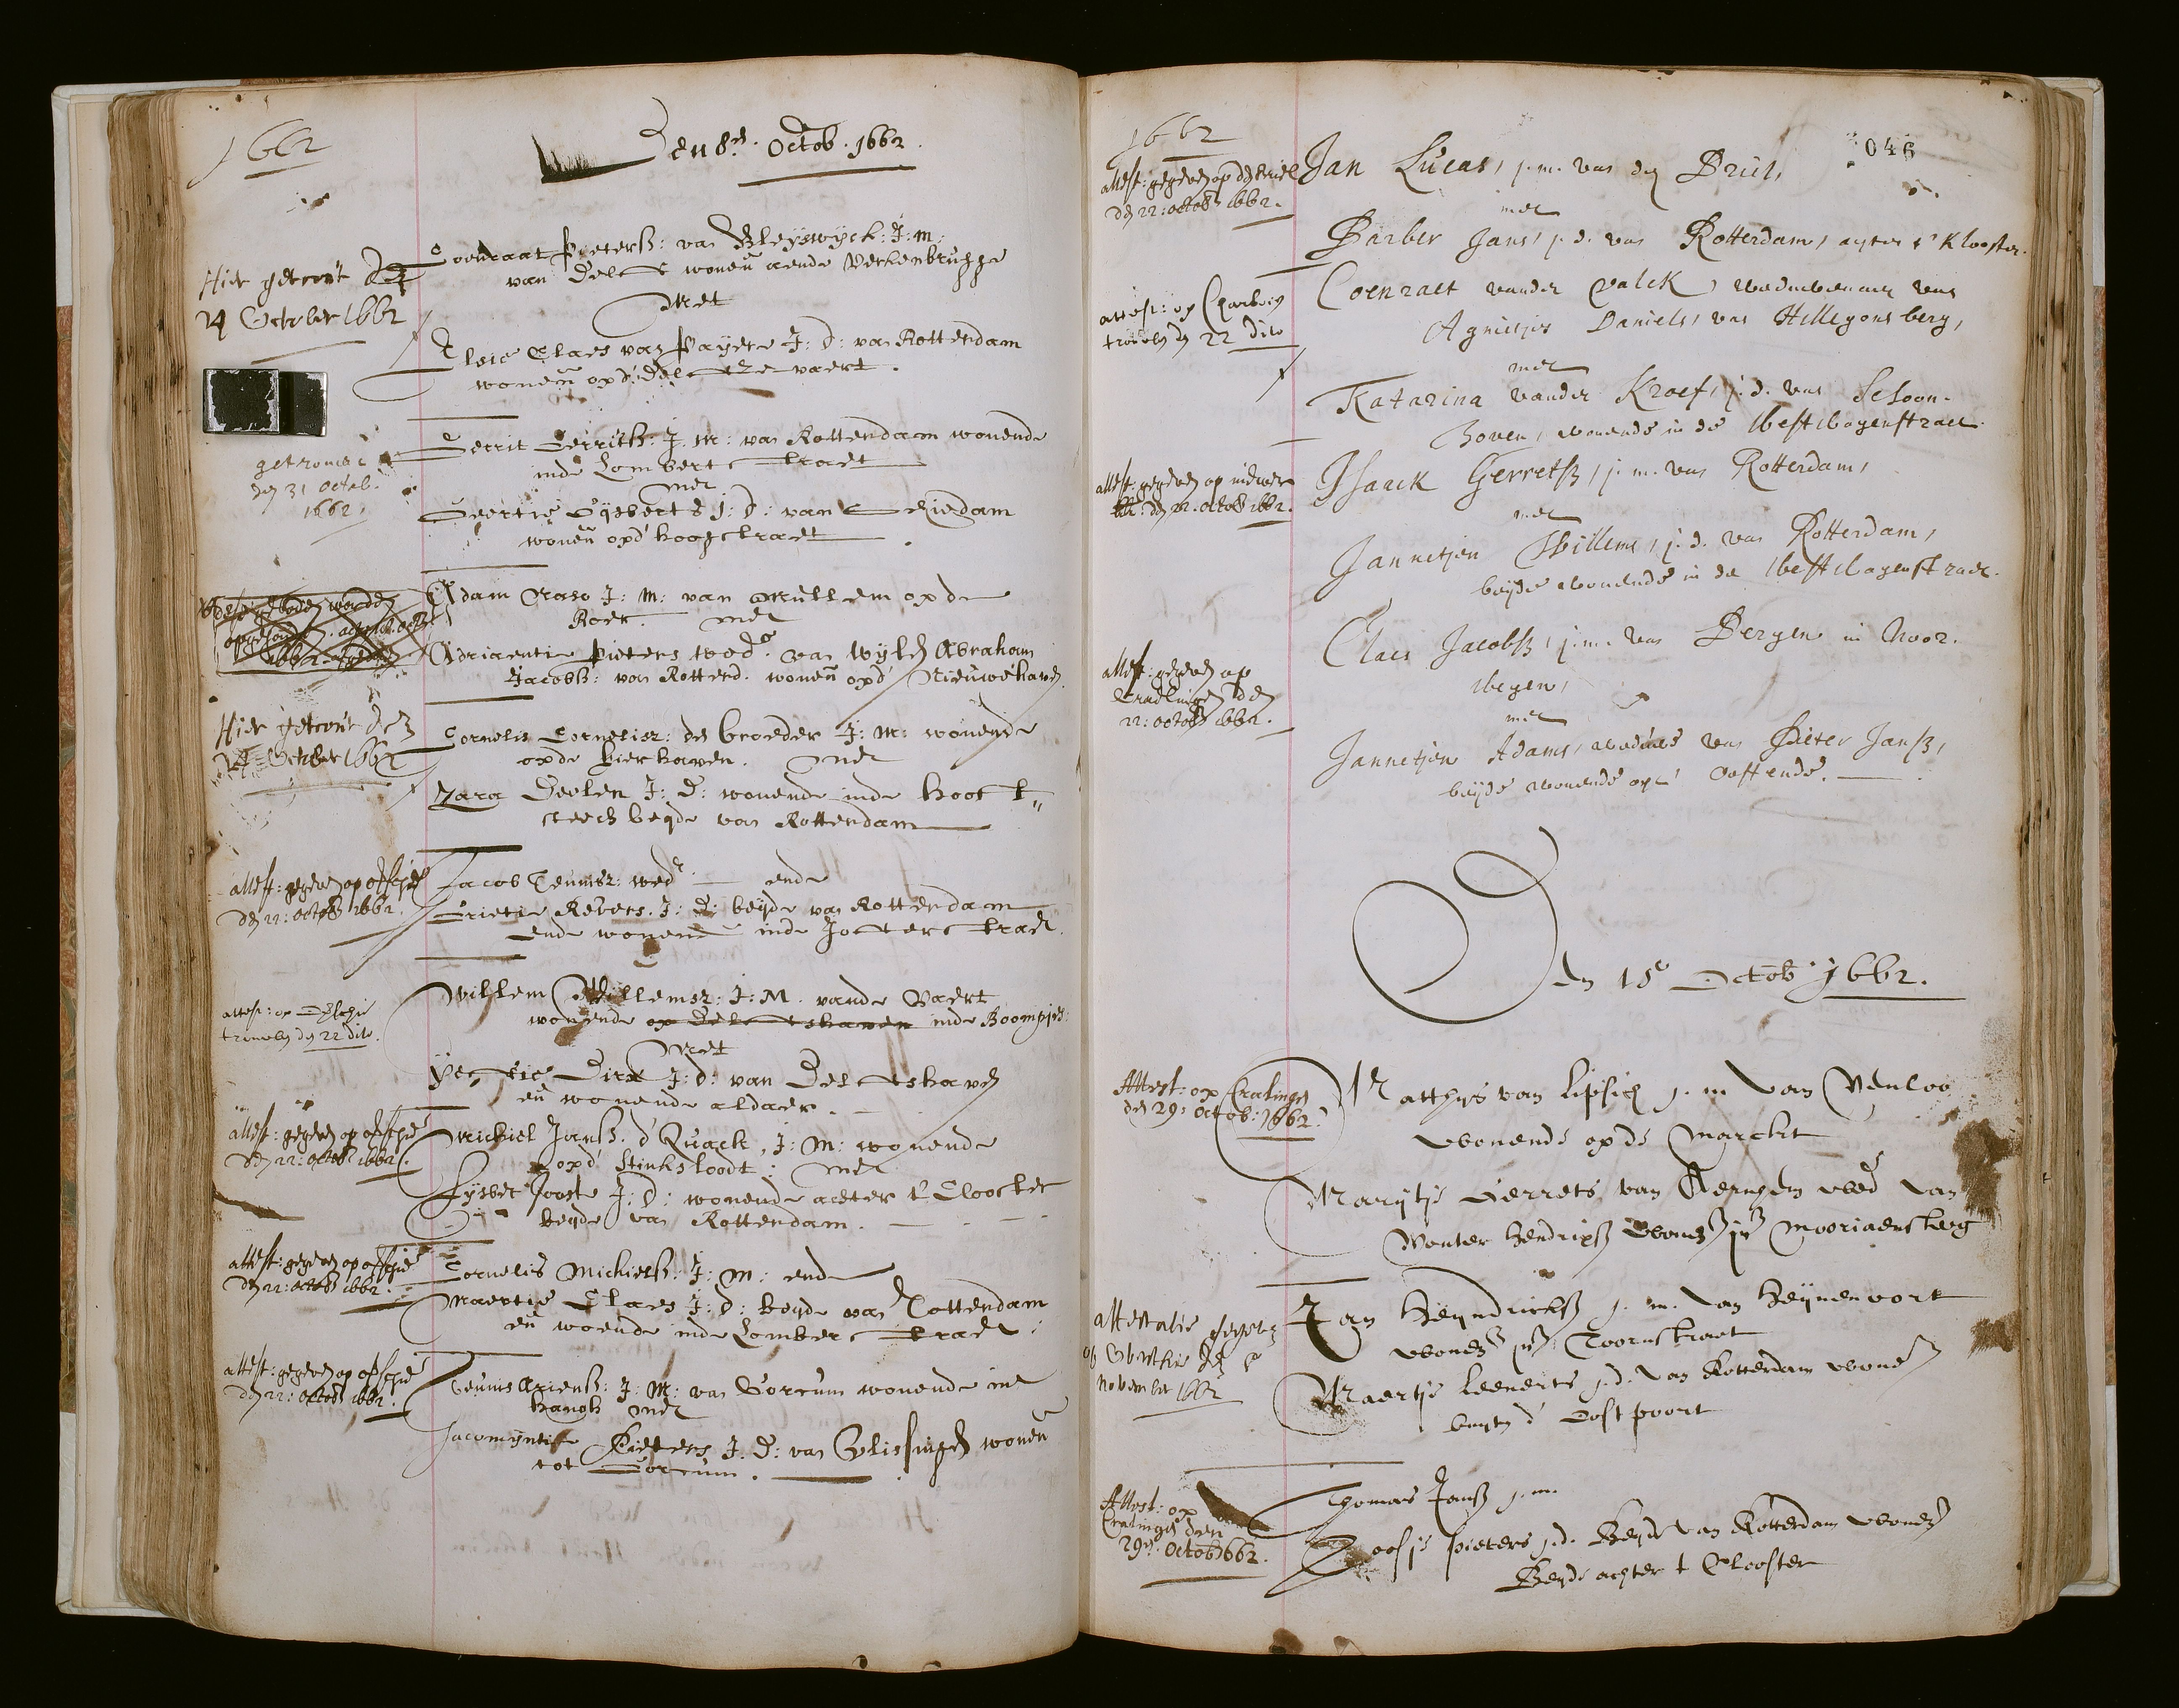 1662
Den 8en. Octob. 1662.
Hier getrout den
24 October 1662
Coenraat Pieterß: van Bleÿswÿck: J: m:
van Delft wonen aende Verkenbrugge
Met
Elsie Claes van Payere J: D: van Rottendam
wonen opd' Delftse vaert.
getrouwt
den 31 octob.
1662.
Gerrit Gerritß: J: M: van Rottendam wonende
inde Lombertstraet
met
Geertie Gijsberts J: D: van Schiedam
wonen opd' hoogstraet
Adam Craso J: M: van Mullem op de
Roer. met
Adriaentie Pieters wede van wylen Abraham
Jacobß: van Rotterd. wonen opd' Nieuwehaven
Hier getrout den
24 October 1662
Cornelis Cornelisz: de broeder J: M: wonende
opde bierhaven. met
Zara Deelen J: D: wonende inde hoost
steech beyde van Rottendam
attest: gegeven op oTschie
den 22: octob 1662.
Jacob Teunisz: wedr ende
Grietie Robers. J: D: beyde van Rottendam
ende wonende inde Josterstraet.
attest: op Ofschie
trouwen den 22 dito.
Willem Willemsz: J: M. vande Vaert
wonende op Delfshaven inde Boompies:
Met
Dirx J: d: van Delfshaven
en wonende aldaer.
attest: gegeven op ofschie
den 22: octob 1662.
Michiel Janß. d' Quack, J: M: wonende
opd' Stinksloodt: met
Lysbet Joosts J: D: wonende achter 't Clooster
beyde van Rottendam.
attest: gegeven op ofschie
den 22: octob 1662.
Cornelis Michielß: J: M: ende
Maertie Claes J: D: beyde van Rottendam
en woende inde Lomberstraet.
attest: gegeven op ofschie
den 22: octob 1662.
Teunis Arienß: J: M: van Gorcum wonende int
hangh met
Jacomyntie Pieters J: D: van Vlissingen wonen
tot Gorcum.
1662
046
attest: gegeven op den Briel
den 22: octob 1662.
Jan Lucas, j. m. van den Briel,
met
Barber Jans, j. d. van Rotterdam, agter 't Klooster.
attest: op Charlois
trouwen den 22 dito
Coenraet vander Valck, weduwenaer van
Agnietjes Daniels, van Hillegonsberg,
met
Katarina vander Kraef, j. d. van Schoon-
hoven, wonende in de Westwagenstraet.
attest: gegeven op
den 22. octob 1662.
Isaack Gerretß, j. m. van Rotterdam,
met
Jannetjen Willems, j. d. van Rotterdam,
beijde wonende in de Westwagenstraet.
attest: gegeven op
Cralingen den
22: octob 1662.
Claes Jacobß, j. m. van Bergen in Noor-
wegen,
met
Jannetjen Adams, weduwe van Pieter Janß,
beijde wonende op 't Oostende.
Den 15e Octob. 1662.
Attest: op Cralingen
den 29: Octob: 1662.
Matthijs van Lipsich j. m. van Venloo
wonende op de Marckt
Marijtje Gerrets van wed van
Wouter Hendrixß wonen in Mooriaensteeg
attestatie gegeven
op den 5e
November 1662
Jan Heyndrickß j. m. van Heijnenoort
wonen in Toornstraet
Maertje Leenerts j. d. van Rotterdam wonen
buyten d' Oostpoort
Attest: op
Cralingen den
29e. Octob 1662.
Thomas Janß j. m.
Roosje Pieters j. d. Beyde van Rotterdam wonen
Beyde achter t Clooster